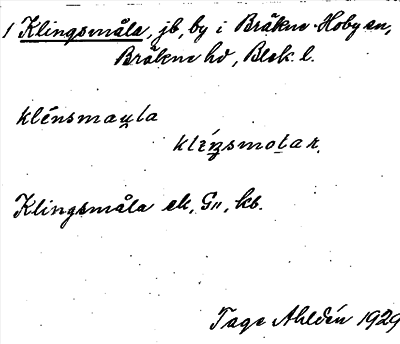 1 Klingsmåla, jb, by i Bräkne-Hoby sn,
Bräkne hd, Blek. l.
klénsmau̯la
klíŋsmolar.
Klingsmåla ek, G11, kb.
Tage Ahldén 1929